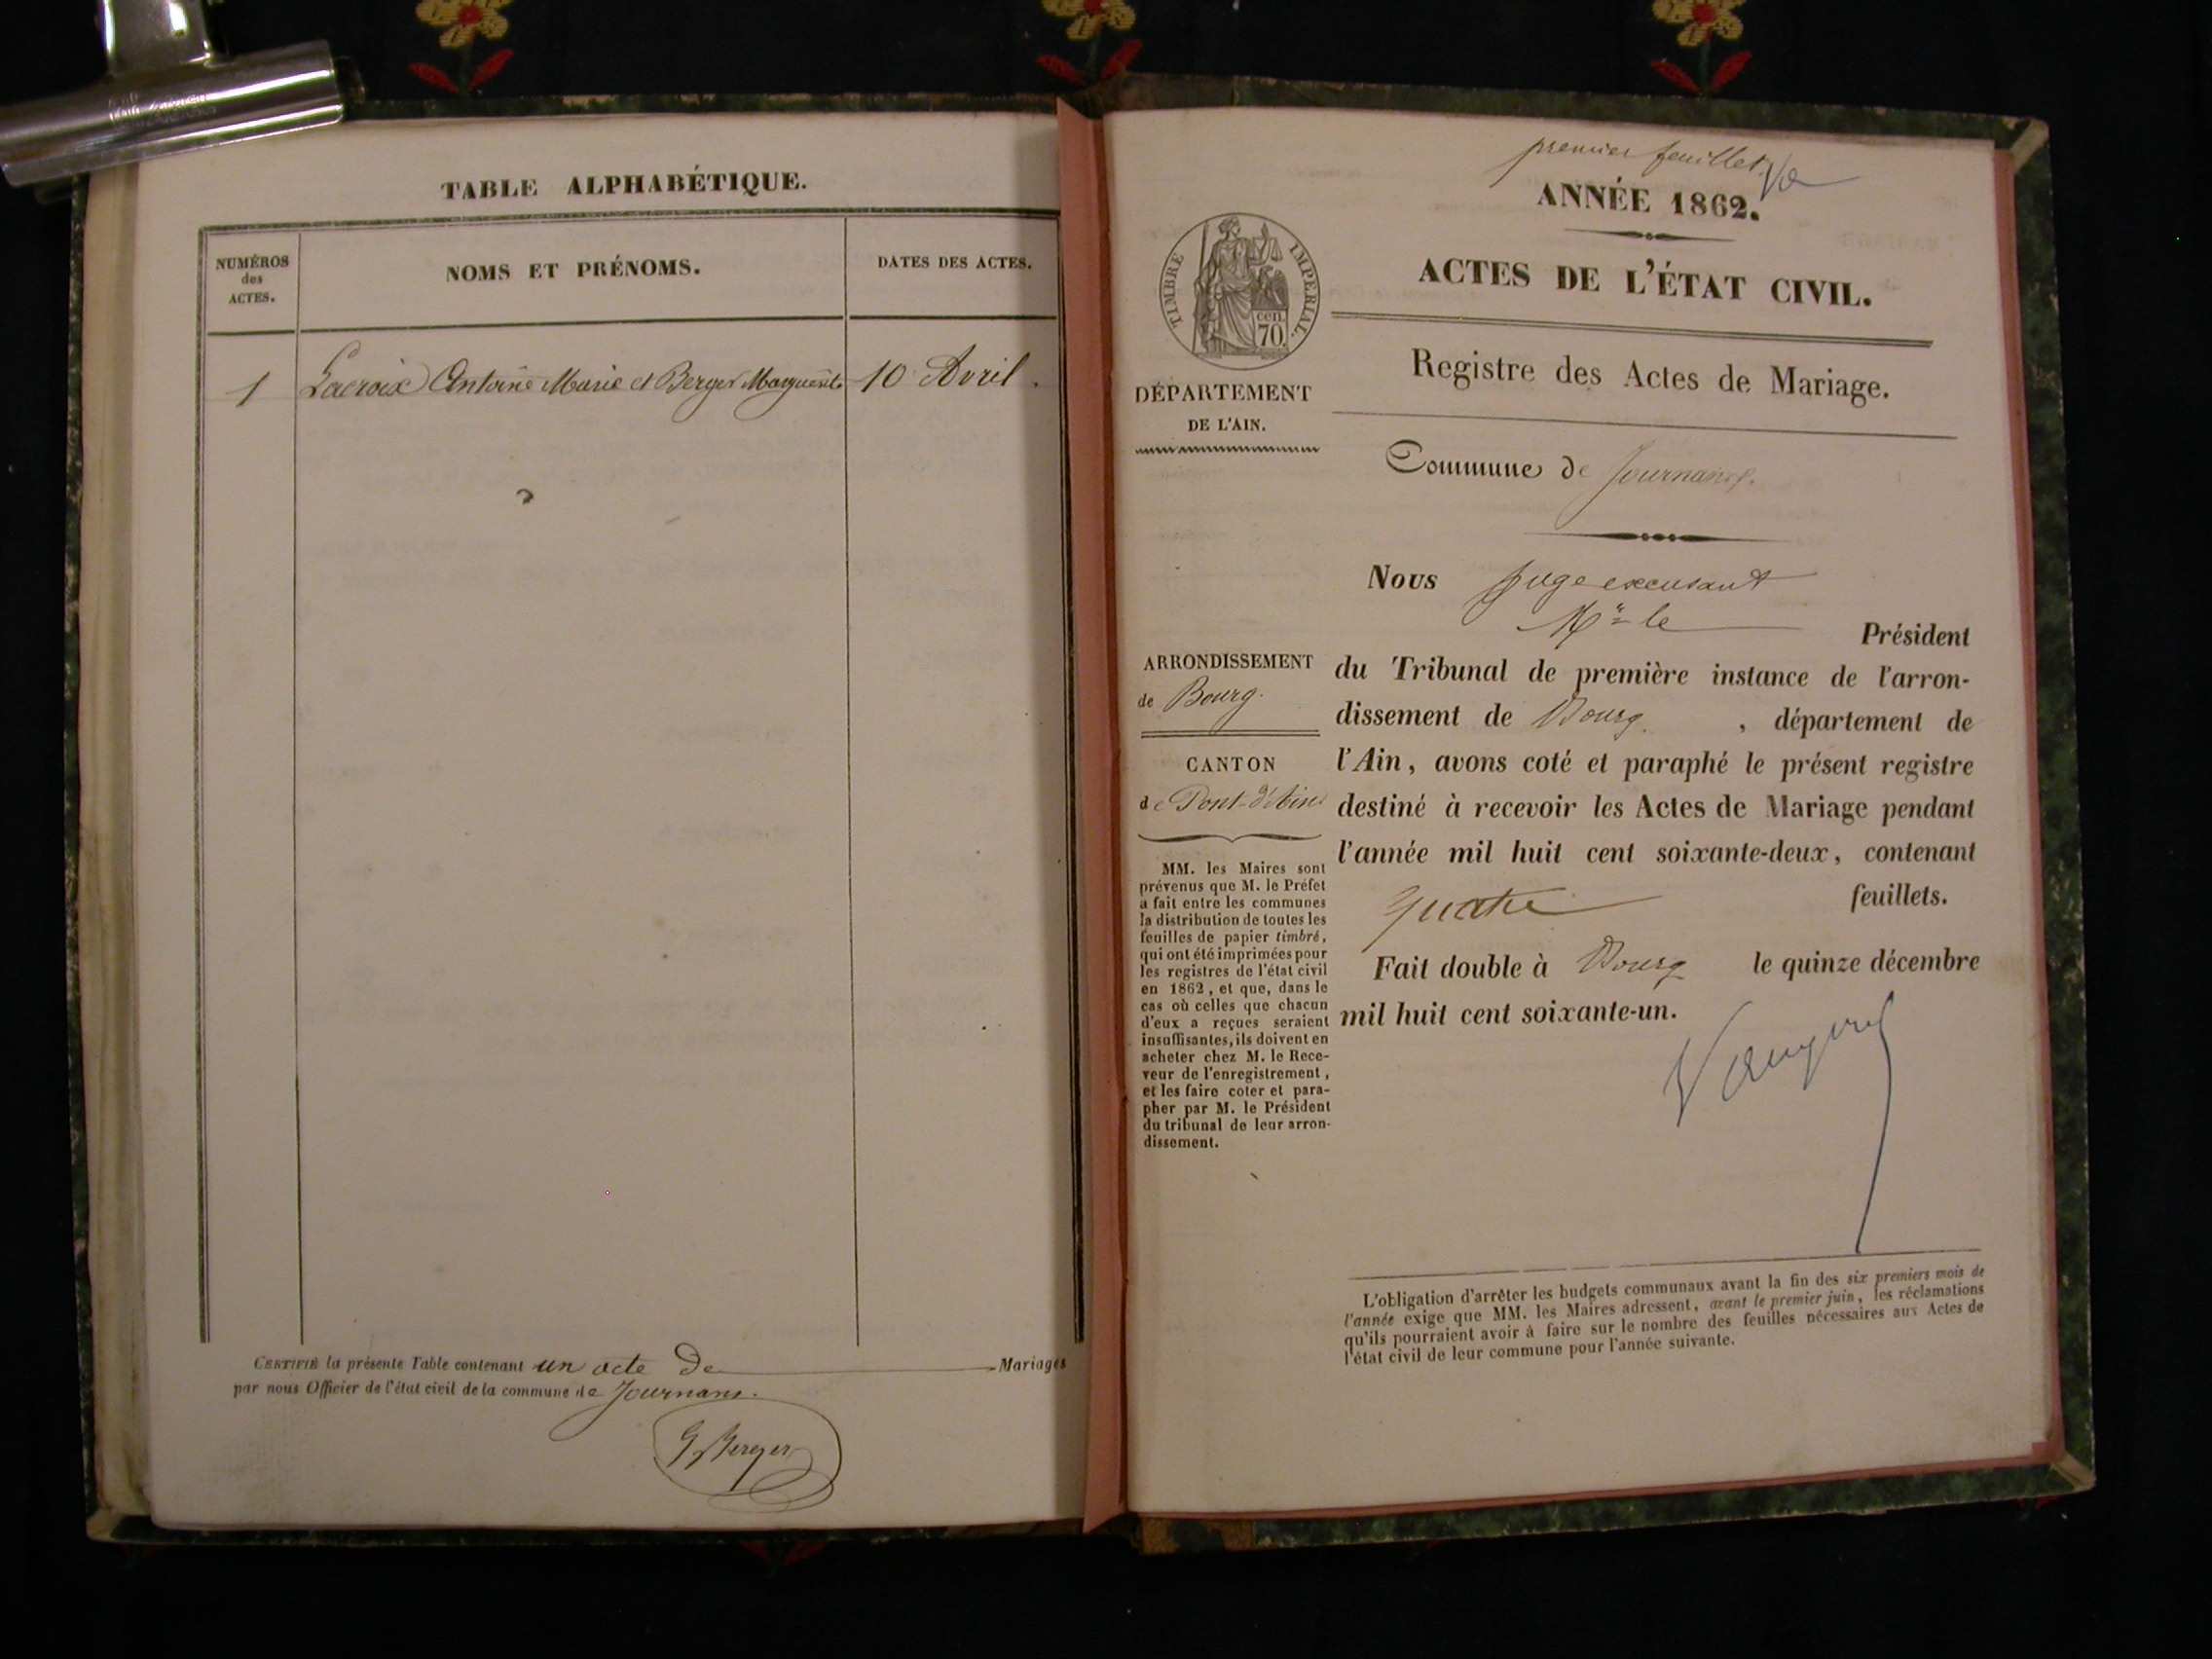 TABLE ALPHABÉTIQUE.
NUMÉROS
des
ACTES.
NOMS ET PRÉNOMS.
DATES DES ACTES.
1 Lacroix Antoine Marie et Berger Marguerite 10 Avril.
CERTIFIÉ la présente Table contenant un acte De Mariages
par nous Officier de l'état civil de la commune de Journans.
G Berger
premier feuillet
ANNÉE 1862.
ACTES DE L'ÉTAT CIVIL.
TIMBRE IMPERIAL.
cen.
70.
Registre des Actes de Mariage.
DÉPARTEMENT
DE L'AIN.
Commune de Journans.
Nous juge excusant
Mr le
Président
du Tribunal de première instance de l'arron-
dissement de Bourg, département de
l'Ain, avons coté et paraphé le présent registre
destiné à recevoir les Actes de Mariage pendant
l'année mil huit cent soixante-deux, contenant
quatre feuillets.
Fait double à Bourg le quinze décembre
mil huit cent soixante-un.
ARRONDISSEMENT
de Bourg.
CANTON
de Pont-d'Ain
MM. les Maires sont
prévenus que M. le Préfet
a fait entre les communes
la distribution de toutes les
feuilles de papier timbré,
qui ont été imprimées pour
les registres de l'état civil
en 1862, et que, dans le
cas où celles que chacun
d'eux a reçues seraient
insuffisantes, ils doivent en
acheter chez M. le Rece-
veur de l'enregistrement,
et les faire coter et para-
pher par M. le Président
du tribunal de leur arron-
dissement.
L'obligation d'arrêter les budgets communaux avant la fin des six premiers mois de
l'année exige que MM. les Maires adressent, avant le premier juin, les réclamations
qu'ils pourraient avoir à faire sur le nombre des feuilles nécessaires aux Actes de
l'état civil de leur commune pour l'année suivante.